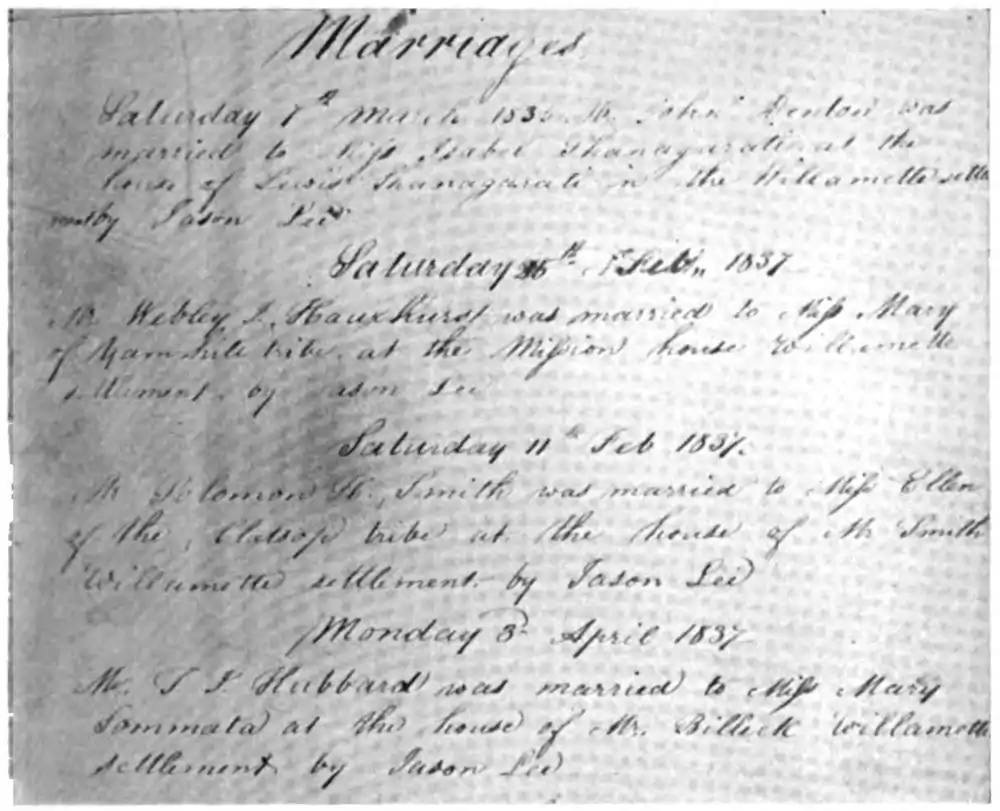 Marriages
Saturday 1th March 183 Mr. John Denton was
married to Miss Isabel Shanagarati at the
house of Lewis Shanagarati in the Willamette settle
ment by Jason Lee
Saturday 25th Feb. 1837
Mr Webley J. Hauxhurst was married to Miss Mary
of Yamhill tribe, at the Mission house Willamette
settlement. by Jason Lee
Saturday 11th Feb 1837.
Mr Solomon H. Smith was married to Miss Ellen
of the Clatsop tribe at the house of Mr Smith
Willamette settlement by Jason Lee
Monday 3d April 1837
Mr. T J Hubbard was married to Miss Mary
Sommata at the house of Mr. Billeck Willamette
settlement by Jason Lee